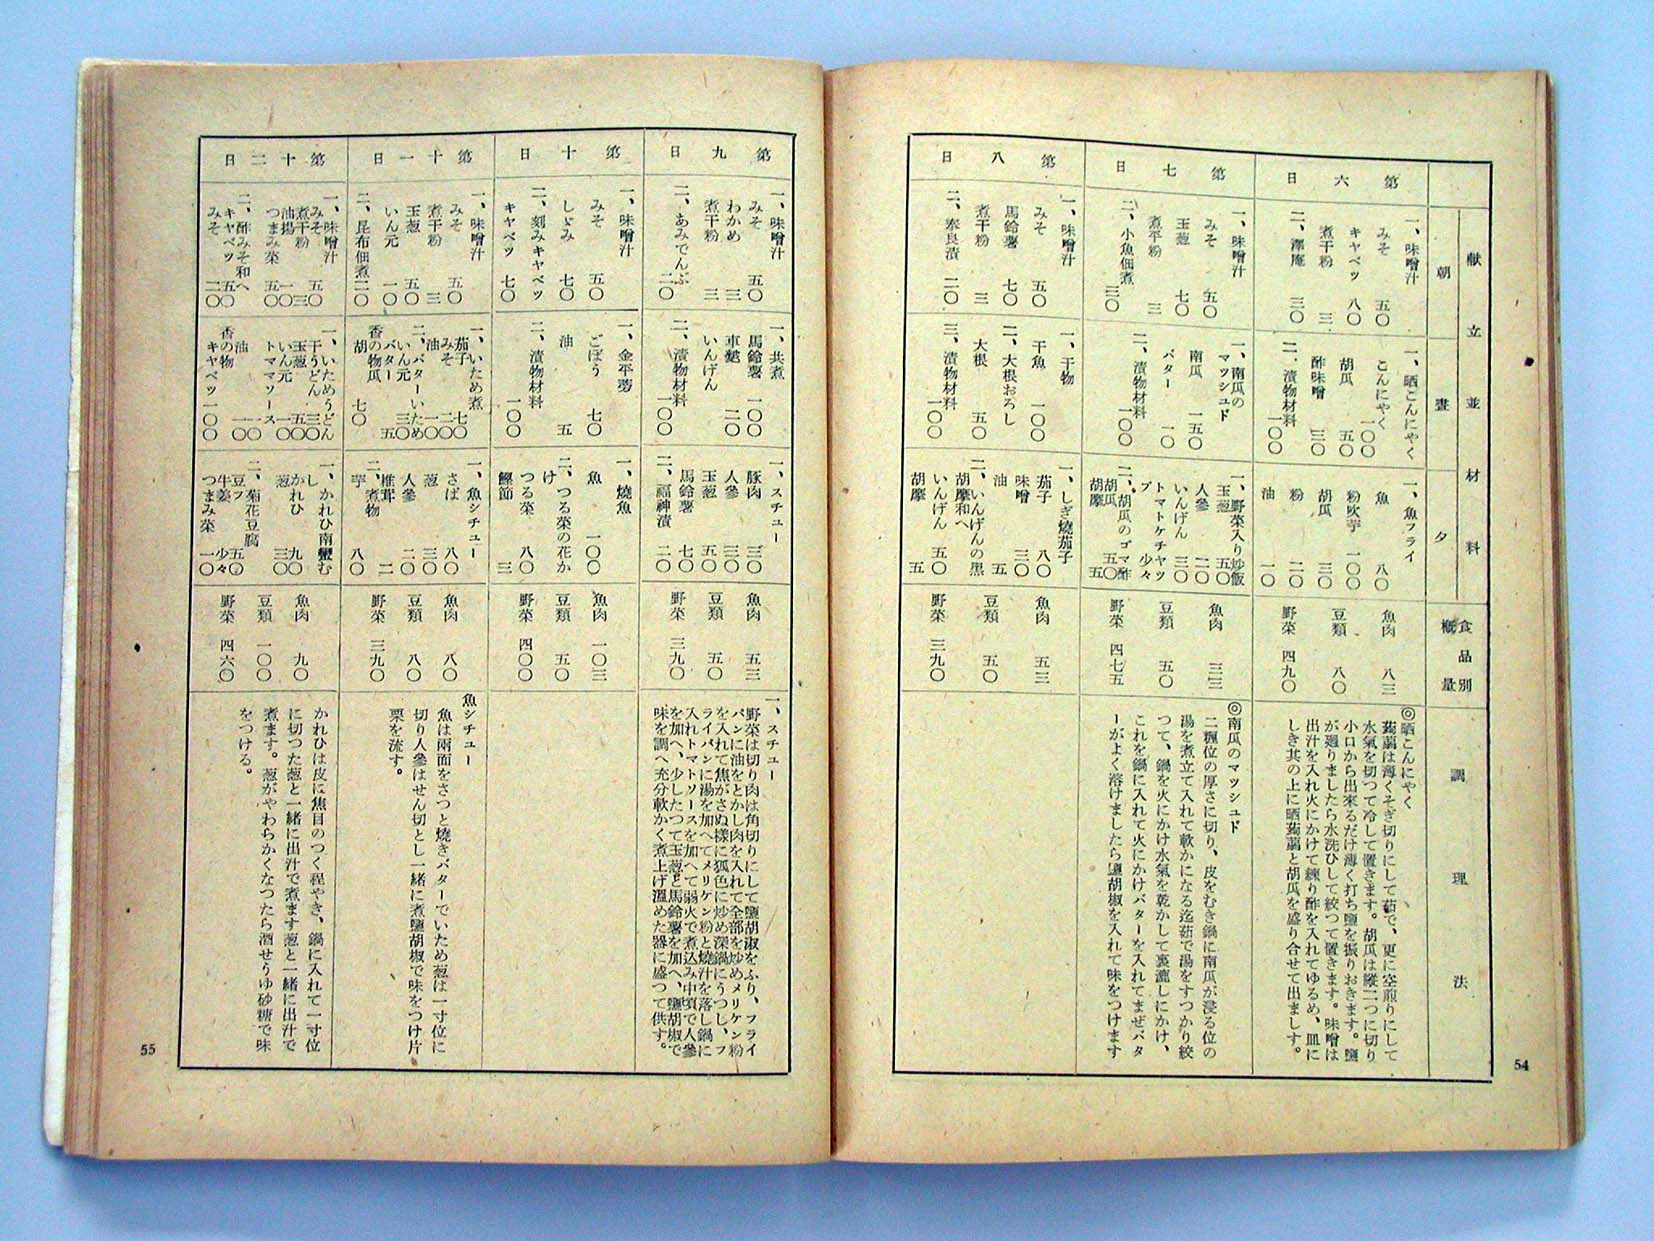 献立並材料
朝
晝
夕
食品別概量
調理法
第六日
一、味噌汁
みそ 五〇
キヤベツ 八〇
煮干粉 三
二、澤庵 三〇
一、晒こんにやく
こんにやく 一〇〇
胡瓜 五〇
酢味噌 三〇
二、漬物材料 一〇〇
一、魚フライ
魚 八〇
粉吹芋 一〇〇
胡瓜 三〇
粉 二〇
油 一〇
魚肉 八三
豆類 八〇
野菜 四九〇
◎晒こんにやく
蒟蒻は薄くそぎ切りにして茹で、更に空煎りにして
水氣を切つて冷して置きます。胡瓜は縱二つに切り
小口から出來るだけ薄く打ち鹽を振りおきます。鹽
が廻りましたら水洗ひして絞つて置きます。味噌は
出汁を入れ火にかけて練り酢を入れてゆるめ、皿に
しき其の上に晒蒟蒻と胡瓜を盛り合せて出ます。
第七日
一、味噌汁
みそ 五〇
玉葱 七〇
煮干粉 三
二、小魚佃煮 三〇
一、南瓜のマツシユド
南瓜 一五〇
バター 一〇
二、漬物材料 一〇〇
一、野菜入り炒飯
玉葱 五〇
人參 二〇
いんげん 三〇
トマトケチヤツプ 少々
二、胡瓜のゴマ酢
胡瓜 五〇
胡摩 五
魚肉 三三
豆類 五〇
野菜 四七五
◎南瓜のマツシユド
二糎位の厚さに切り、皮をむき鍋に南瓜が浸る位の
湯を煮立て入れて軟かになる迄茹で湯をすつかり絞
つて、鍋を火にかけ水氣を乾かして裏漉しにかけ、
これを鍋に入れて火にかけバターを入れてまぜバタ
ーがよく溶けましたら鹽胡椒を入れて味をつけます
第八日
一、味噌汁
みそ 五〇
馬鈴薯 七〇
煮干粉 三
二、奈良漬 二〇
一、干物
干魚 一〇〇
二、大根おろし
大根 五〇
三、漬物材料 一〇〇
一、しぎ燒茄子
茄子 八〇
味噌 三〇
油
二、いんげんの黒胡摩和へ
いんげん 五〇
胡摩 五
魚肉 五三
豆類 五〇
野菜 三九〇
54
第九日
一、味噌汁
みそ 五〇
わかめ 三
煮干粉 三
二、あみでんぶ 二〇
一、共煮
馬鈴薯 一〇〇
車麩
いんげん 二〇
二、漬物材料 一〇〇
一、スチユー
豚肉 三〇
人參 三〇
玉葱 五〇
馬鈴薯 七〇
二、福神漬 二〇
魚肉 五三
豆類 五〇
野菜 三九〇
一、スチユー
野菜は切り肉は角切りにして鹽胡淑をふり、フライ
パンに油をとかし肉を入れて全部を炒めメリケン粉
を入れて焦がさぬ樣に狐色に炒め深鍋にうつし、フ
ライパンに湯を加へてメリケン粉と燒汁を落し鍋に
入れトマトソースを加へて弱火で煮込み中頃で人參
を加へ、少したつて玉葱と馬鈴薯を加へ、鹽胡椒で
味を調へ充分軟かく煮上げ溫めた器に盛つて供す。
第十日
一、味噌汁
みそ 五〇
しゞみ 七〇
二、刻みキヤベツ
キヤベツ 七〇
一、金平蒡
ごぼう 七〇
油 五
二、漬物材料 一〇〇
一、燒魚
魚 一〇〇
二、つる菜の花かけ
つる菜 八〇
鰹節 三
魚肉 一〇三
豆類 五〇
野菜 四〇〇
第十一日
一、味噌汁
みそ 五〇
煮干粉 三
玉葱 五〇
いん元 一〇
二、昆布佃煮 二〇
一、いため煮
茄子 七〇
みそ 二〇
油 一〇
二、バターいため
いん元 三〇
バター 五
香の物
胡瓜 七〇
一、魚シチユー
さば 八〇
葱 三〇
人參 二〇
椎茸 二
二、煮物
芋 八〇
魚肉 八〇
豆類 八〇
野菜 三九〇
魚シチユー
魚は兩面をさつと燒きバターでいため葱は一寸位に
切り人參はせん切とし一緒に煮鹽胡椒で味をつけ片
栗を流す。
第十二日
一、味噌汁
みそ 五〇
煮干粉 三
油揚 一〇
つまみ菜 五〇
二、酢みそ和へ
キヤベツ 五〇
みそ 二〇
一、いためうどん
干うどん 三〇
玉葱 五〇
いん元 一〇
トママソース
油 一〇
香の物
キヤベツ 一〇〇
一、かれひ南蠻むし
かれひ 九〇
葱 三〇
二、菊花豆腐
豆フ 五〇
生姜 少々
つまみ菜 一〇
魚肉 九〇
豆類 一〇〇
野菜 四六〇
かれひは皮に焦目のつく程やき、鍋に入れて一寸位
に切つた葱と一緒に出汁で煮ます葱と一緒に出汁で
煮ます。葱がやわらかくなつたら酒せうゆ砂糖で味
をつける。
55